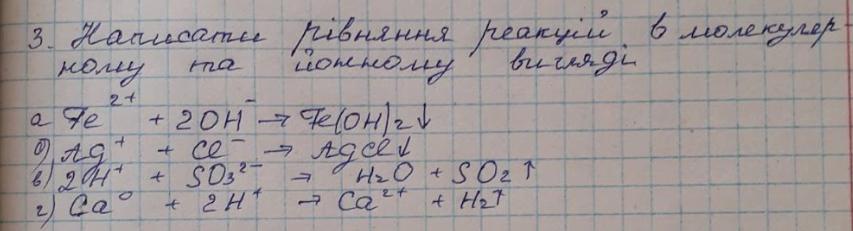 3. Написати рівняння реакцій в молекуляр-
ному та йонному вигляді
а Fe²⁺ + 2OH⁻ → Fe(OH)₂↓
б) Ag⁺ + Cl⁻ → AgCl↓
в) 2H⁺ + SO₃²⁻ → H₂O + SO₂↑
г) Ca⁰ + 2H⁺ → Ca²⁺ + H₂↑